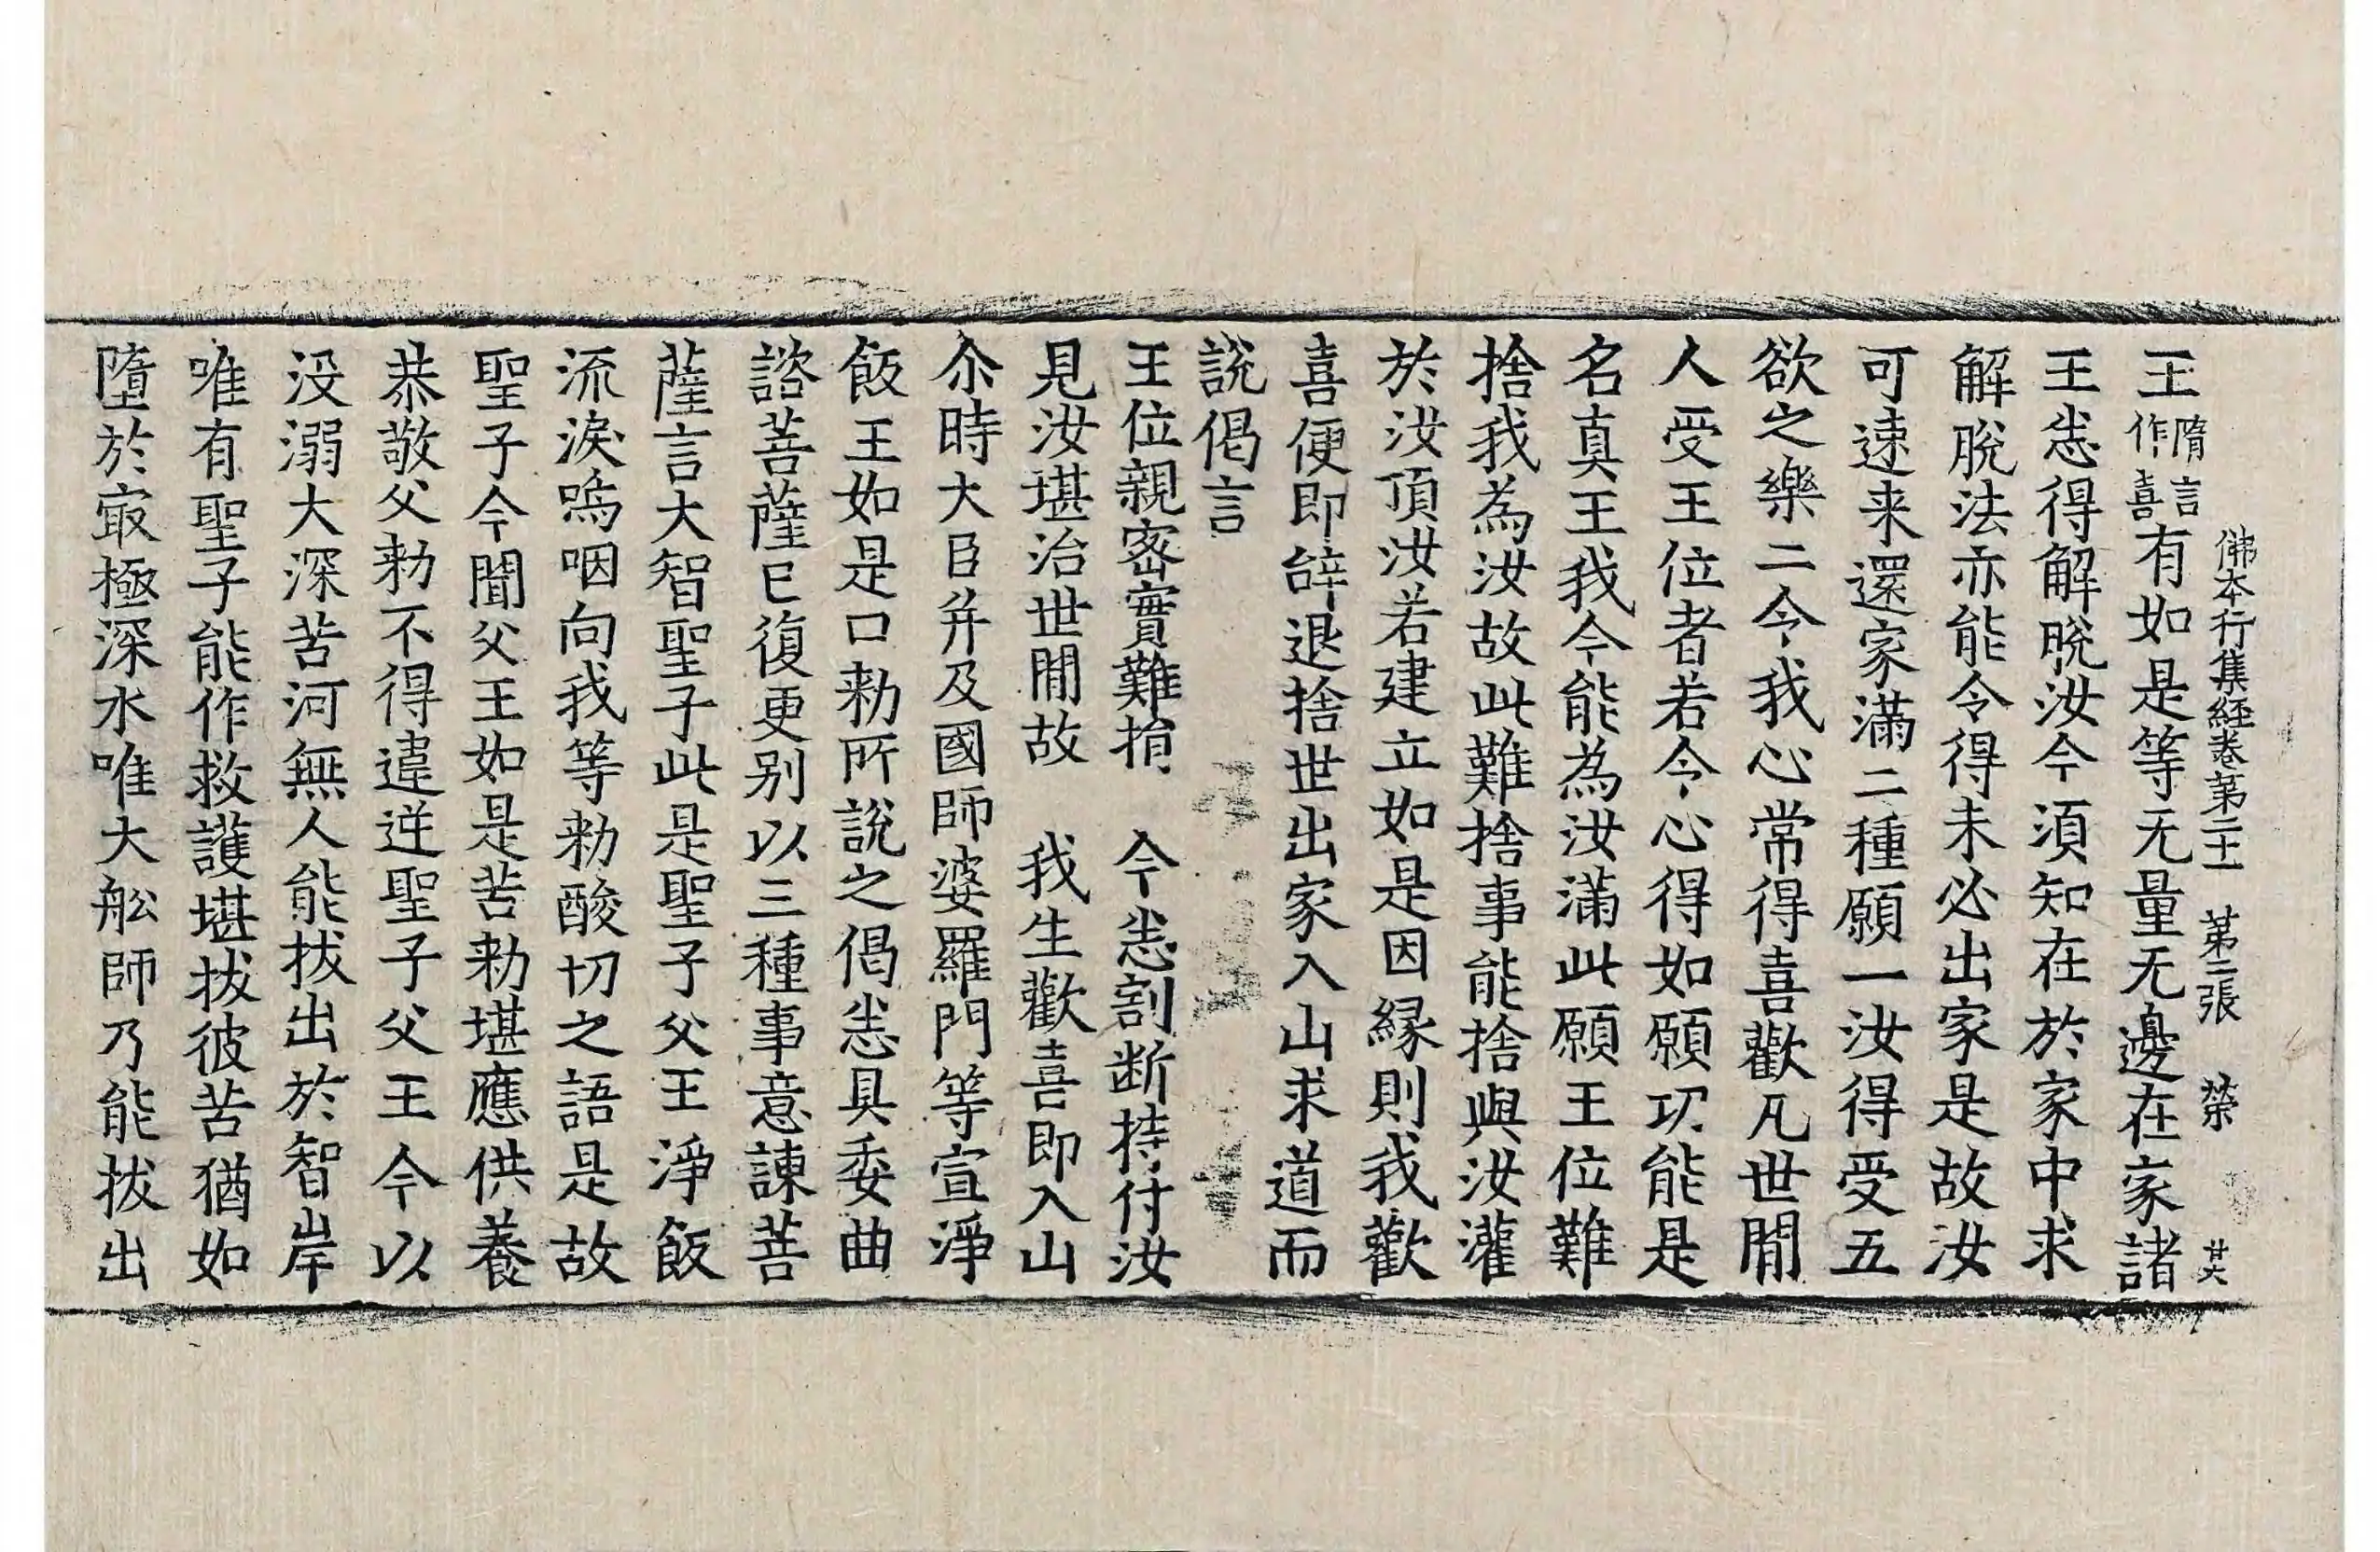 佛本行集經卷第二十一　第二張　榮　廿六
王隋言作喜有如是等无量无邊在家諸
王悉得解脫汝今須知在於家中求
解脫法亦能令得未必出家是故汝
可速来還家滿二種願一汝得受五
欲之樂二今我心常得喜歡凡世閒
人受王位者若今心得如願㓛能是
名真王我今能為汝滿此願王位難
捨我為汝故此難捨事能捨與汝灌
於汝頂汝若建立如是因縁則我歡
喜便即辝退捨世出家入山求道而
說偈言
王位親密實難捐　今悉割断持付汝
見汝堪治世閒故　我生歡喜即入山
尒時大臣并及國師婆羅門等宣淨
飯王如是口勑所說之偈悉具委曲
諮菩薩已復更別以三種事意諫菩
薩言大智聖子此是聖子父王淨飯
流淚嗚咽向我等勑酸切之語是故
聖子今聞父王如是苦勑堪應供養
恭敬父勑不得違逆聖子父王今以
没溺大深苦河無人能拔出於智岸
唯有聖子能作救護堪拔彼苦猶如
墮於㝡極深水唯大舩師乃能拔出